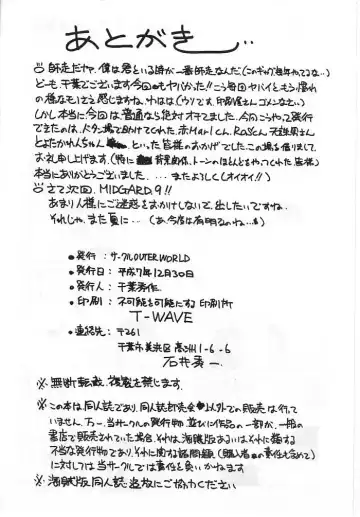 あとがき…
師走だけど、僕は君といる時が一番師走なんだ(このギャグ毎年やってるな…)
どーも、千葉でございます。今回もヤバかった!!こう毎回ヤバイともう慣れ
の様なモノさえ感じますね。わはは(ウソです。印刷屋さんゴメンなさい)
しかし本当に今回は普通なら絶対オチてました。今、こうやって発行
できたのは、ドタン場で助けてくれた、
といった皆様のおかげでした。この場を借りまして、
お礼申し上げます。(特に背景関係、トーンのほとんどをやってくれた皆様)
本当にありがとうございました。…またよろしく(オイオイ!!)
さて次回、MIDGARD 9!!
あまり人様にご迷惑をおかけしないで、出したいですね。
それじゃ、また夏に…(あ、今度は有明なのね…)
●発行：サークルOUTER WORLD
●発行日：平成7年12月30日
●発行人：千葉秀作
●印刷：不可能を可能にする印刷所
T-WAVE
●連絡先：〒261
千葉市美浜区高洲1-6-6
※無断転載、複製を禁じます。
※この本は同人誌であり、同人誌即売会以外での販売は行って
いません。万一、当サークルの発行物並びに作品の一部が、一般の
書店で販売されていた場合、それは、海賊版あるいはそれに類する
不当な発行物であり、それに関する諸問題(購入者の責任も含めて)
に対しては当サークルでは責任を負いかねます
※海賊版同人誌追放にご協力ください